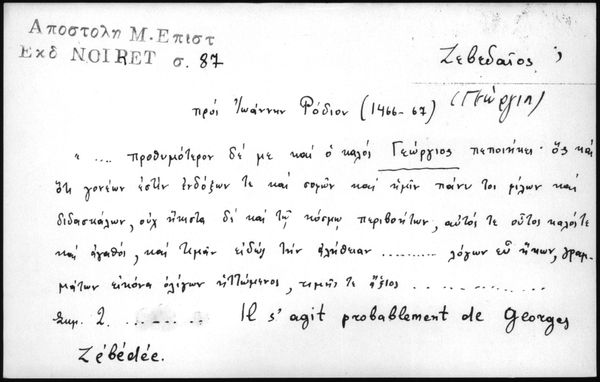 Αποστολη Μ. Επιστ
Εκδ NOIRET σ. 87
Ζεβεδαῖος,
(Γεώργιος)
πρός Ἰωάννην Ρόδιον (1466-67)
" .... προθυμότερον δέ με καί ὁ καλός Γεώργιος πεποίηκει. ὅς καί
ὅτι γονέων ἐστίν ἐνδόξων τε καί σοφῶν καί ἡμῖν πάνυ τοι φίλων καί
διδασκάλων, οὐχ ἥκιστα δέ καί τῷ κόσμῳ περιβοήτων, αὐτός τε οὗτος καλός τε
καί ἀγαθός, καί τιμᾶν εἰδώς τήν ἀλήθειαν .......... λόγων εὖ ἥκων, γραμ-
μάτων εἰκόνα ὀλίγων ἡττώμενος, τιμῆς τε ἄξιος ...... .. ...........
Σημ. 2. ........ Il s'agit probablement de Georges
Zébédée.